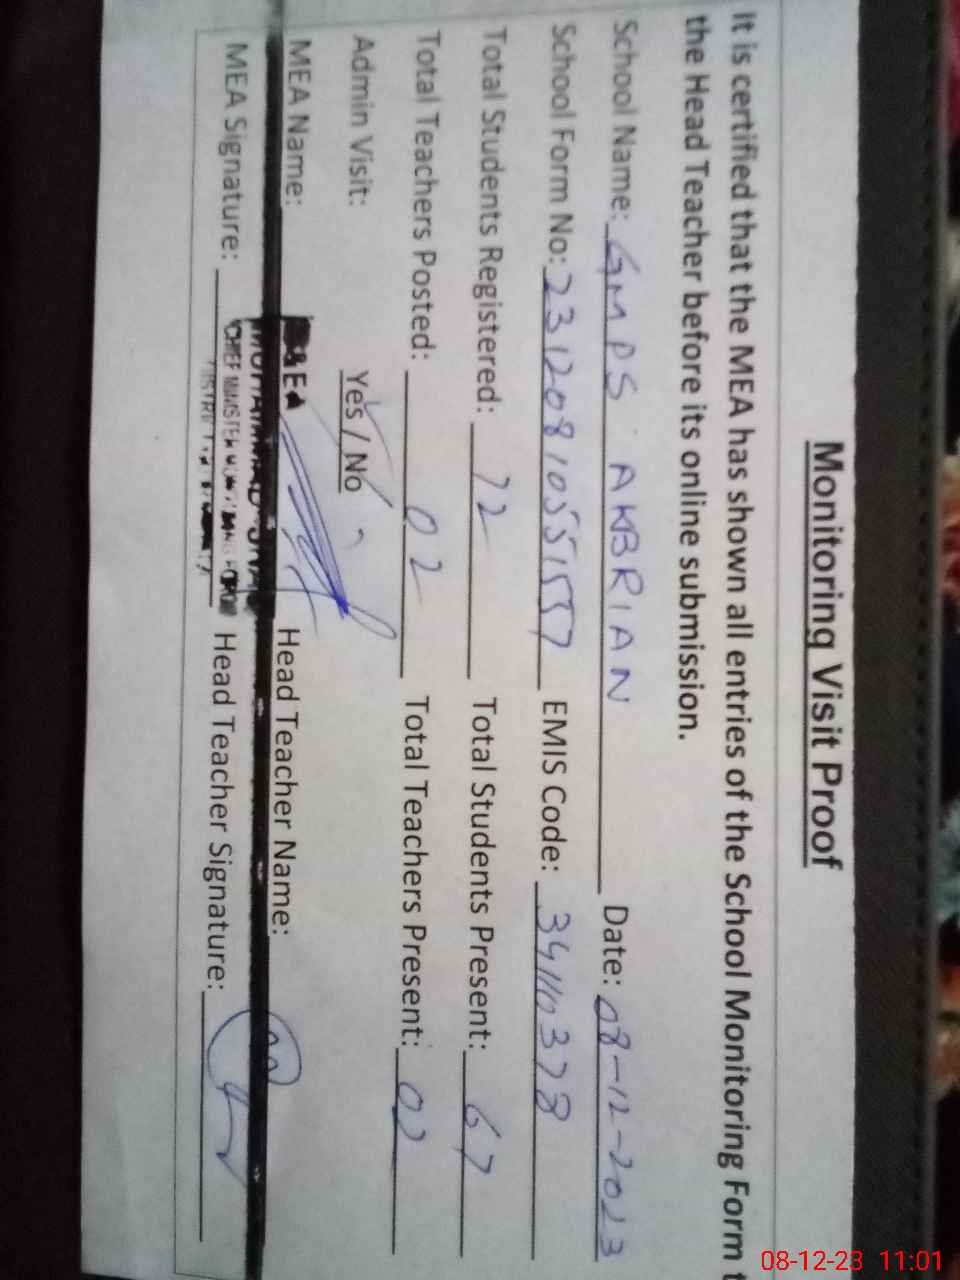 Monitoring Visit Proof
It is certified that the MEA has shown all entries of the School Monitoring Form t
the Head Teacher before its online submission.
School Name: GMPS AKBRIAN Date: 08-12-2023
School Form No: EMIS Code: 34110378
Total Students Registered: 72 Total Students Present: 67
Total Teachers Posted: 02 Total Teachers Present: 02
Admin Visit: Yes / No
MEA Name: Head Teacher Name:
MEA Signature: CHIEF MINISTER Head Teacher Signature:
08-12-23 11:01